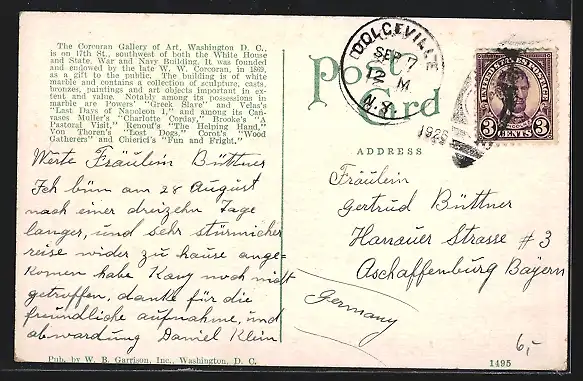 The Corcoran Gallery of Art, Washington D. C.,
is on 17th St., southwest of both the White House
and State, War and Navy Building. It was founded
and endowed by the late W. W. Corcoran, in 1869,
as a gift to the public. The building is of white
marble and contains a collection of sculpture, casts,
bronzes, paintings and art objects important in ex-
tent and value. Notably among its possessions in
marble are Powers' "Greek Slave" and Vela's
"Last Days of Napoleon I," and among its Can-
vases Muller's "Charlotte Corday," Brooke's "A
Pastoral Visit," Renouf's "The Helping Hand,"
Von Thoren's "Lost Dogs," Corot's "Wood
Gatherers" and Chierici's "Fun and Fright."
Werte Fräulein Büttner
Ich büm am 28 August
nach einer dreizehn Tage
langer, und sehr stürmicher
reise wider zu hause ange=
komen habe Kavy noch nicht
getroffen, danke für die
freundliche aufnahme, und
abwardung Daniel Klein
Pub. by W. B. Garrison, Inc., Washington, D. C.
Post
Card
ADDRESS
DOLGEVILLE
SEP 7
12 M
N.Y.
1926
UNITED STATES POSTAGE
3 CENTS 3
Fräulein
Gertrud Büttner
Hanauer Strasse # 3
Aschaffenburg Bayern
Germany
6,-
1495